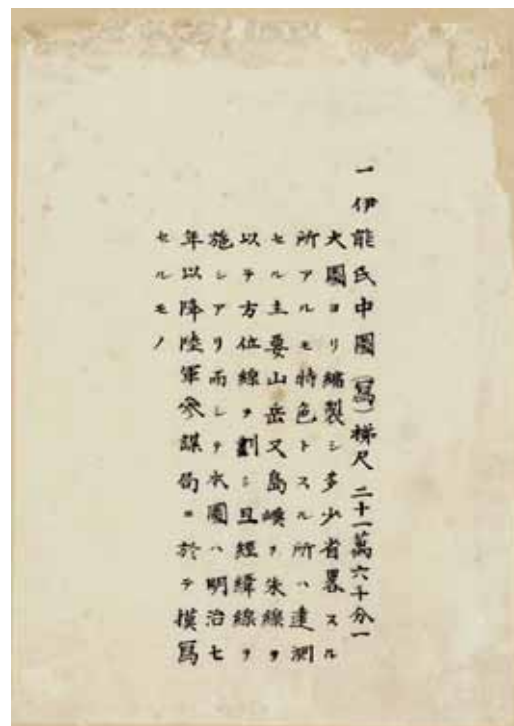 一伊能氏中圖(寫)梯尺 二十一萬六千分一
大圖ヨリ縮製シ多少省畧スル
所アルモ特色トスル所ハ遠測
セル主要山岳又島嶼ヲ朱線ヲ
以テ方位線ヲ劃シ且經緯線ヲ
施シアリ而シテ本圖ハ明治七
年以降陸軍參謀局ニ於テ摸寫
セルモノ